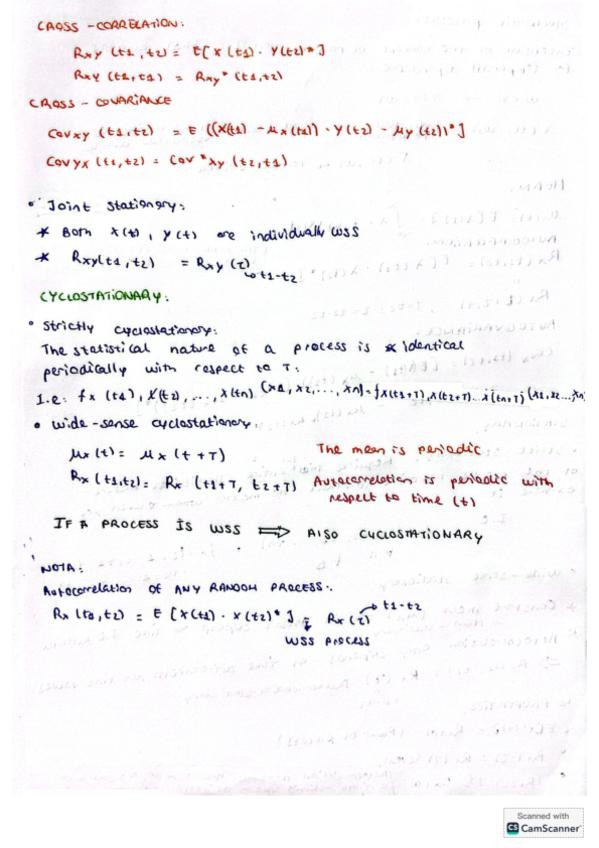 CROSS-CORRELATION:
Rxy (t1,t2) = E[X(t1) · Y(t2)*]
Rxy (t1,t1) = Rxy* (t1,t2)
CROSS-COVARIANCE
Cov xy (t1,t2) = E ((X(t1) - μx(t1)) · Y(t2) - μy(t2))*]
Cov yx (t1,t2) = Cov*xy (t2,t1)
• Joint stationary:
* Both X(t), Y(t) are individually WSS
* Rxy(t1,t2) = Rxy (τ)
↳ t1-t2
CYCLOSTATIONARY:
• Strictly cyclostationary:
The statistical nature of a process is identical
periodically with respect to T:
I.e: fx (t1), X(t2), ..., X(tn) (x1, x2, ..., xn) = fX(t1+T), X(t2+T)...X(tn+T) (x1, x2...xn
• Wide-sense cyclostationary
μx(t) = μx (t+T) The mean is periodic
Rx(t1,t2) = Rx (t1+T, t2+T) Autocorrelation is periodic with
respect to time (t)
IF A PROCESS IS WSS ⟹ ALSO CYCLOSTATIONARY
NOTA:
Autocorrelation OF ANY RANDOM PROCESS:
Rx(t1,t2) = E [X(t1) · X(t2)*] = Rx(τ) → t1-t2
↓
WSS PROCESS
Scanned with
CS CamScanner